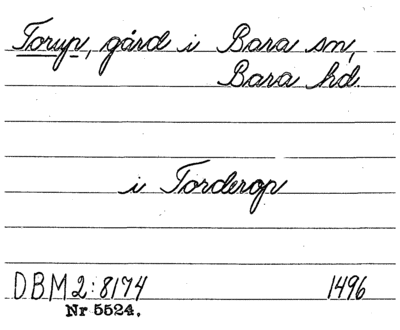 Torup, gård i Bara sn,
Bara hd.
i Torderop
DBM 2:8174 1496
Nr 5524.